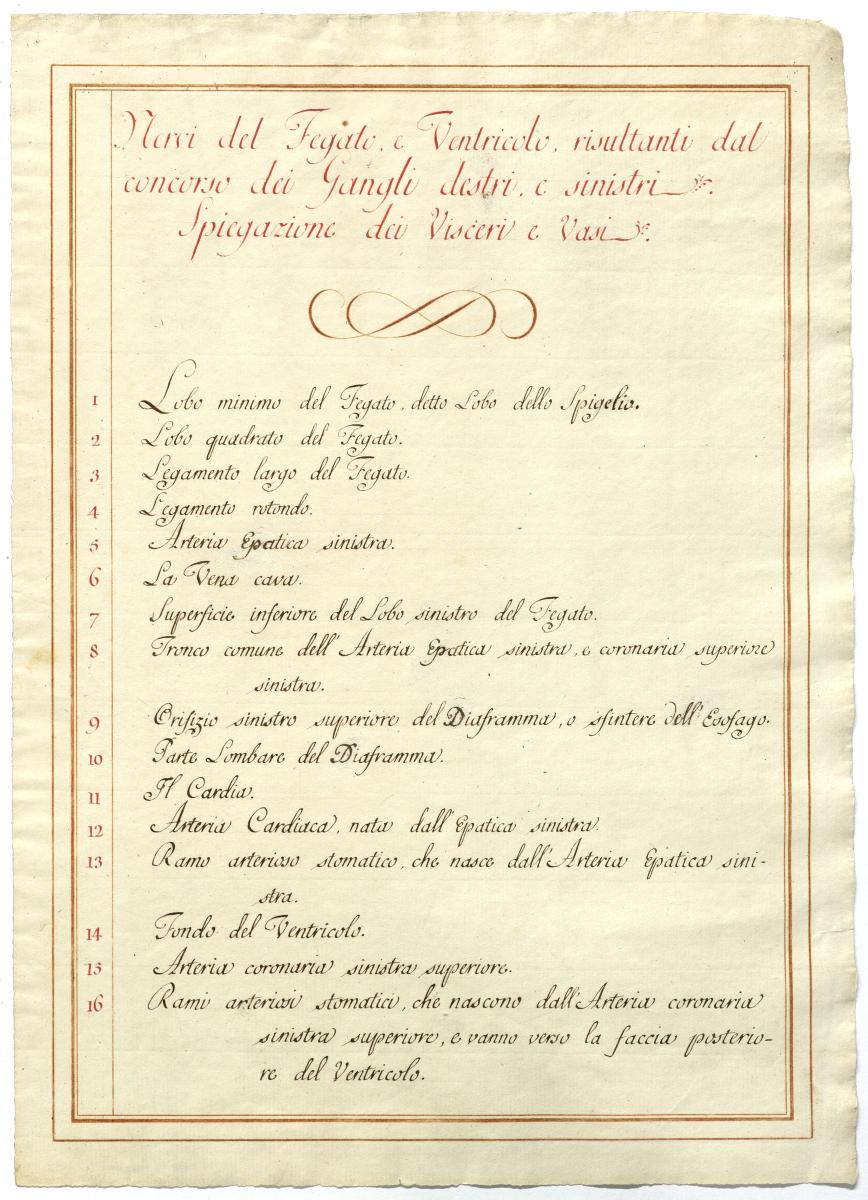 Nervi del Fegato, e Ventricolo, risultanti dal
concorso dei Gangli destri, e sinistri.
Spiegazione dei Visceri e Vasi.
1 Lobo minimo del Fegato, detto Lobo dello Spigelio.
2 Lobo quadrato del Fegato.
3 Legamento largo del Fegato.
4 Legamento rotondo.
5 Arteria Epatica sinistra.
6 La Vena cava.
7 Superficie inferiore del Lobo sinistro del Fegato.
8 Tronco comune dell'Arteria Epatica sinistra, e coronaria superiore
sinistra.
9 Orifizio sinistro superiore del Diaframma, o sfintere dell'Esofago.
10 Parte Lombare del Diaframma.
11 Il Cardia.
12 Arteria Cardiaca, nata dall'Epatica sinistra.
13 Ramo arterioso stomatico, che nasce dall'Arteria Epatica sini-
stra.
14 Fondo del Ventricolo.
15 Arteria coronaria sinistra superiore.
16 Rami arteriosi stomatici, che nascono dall'Arteria coronaria
sinistra superiore, e vanno verso la faccia posterio-
re del Ventricolo.